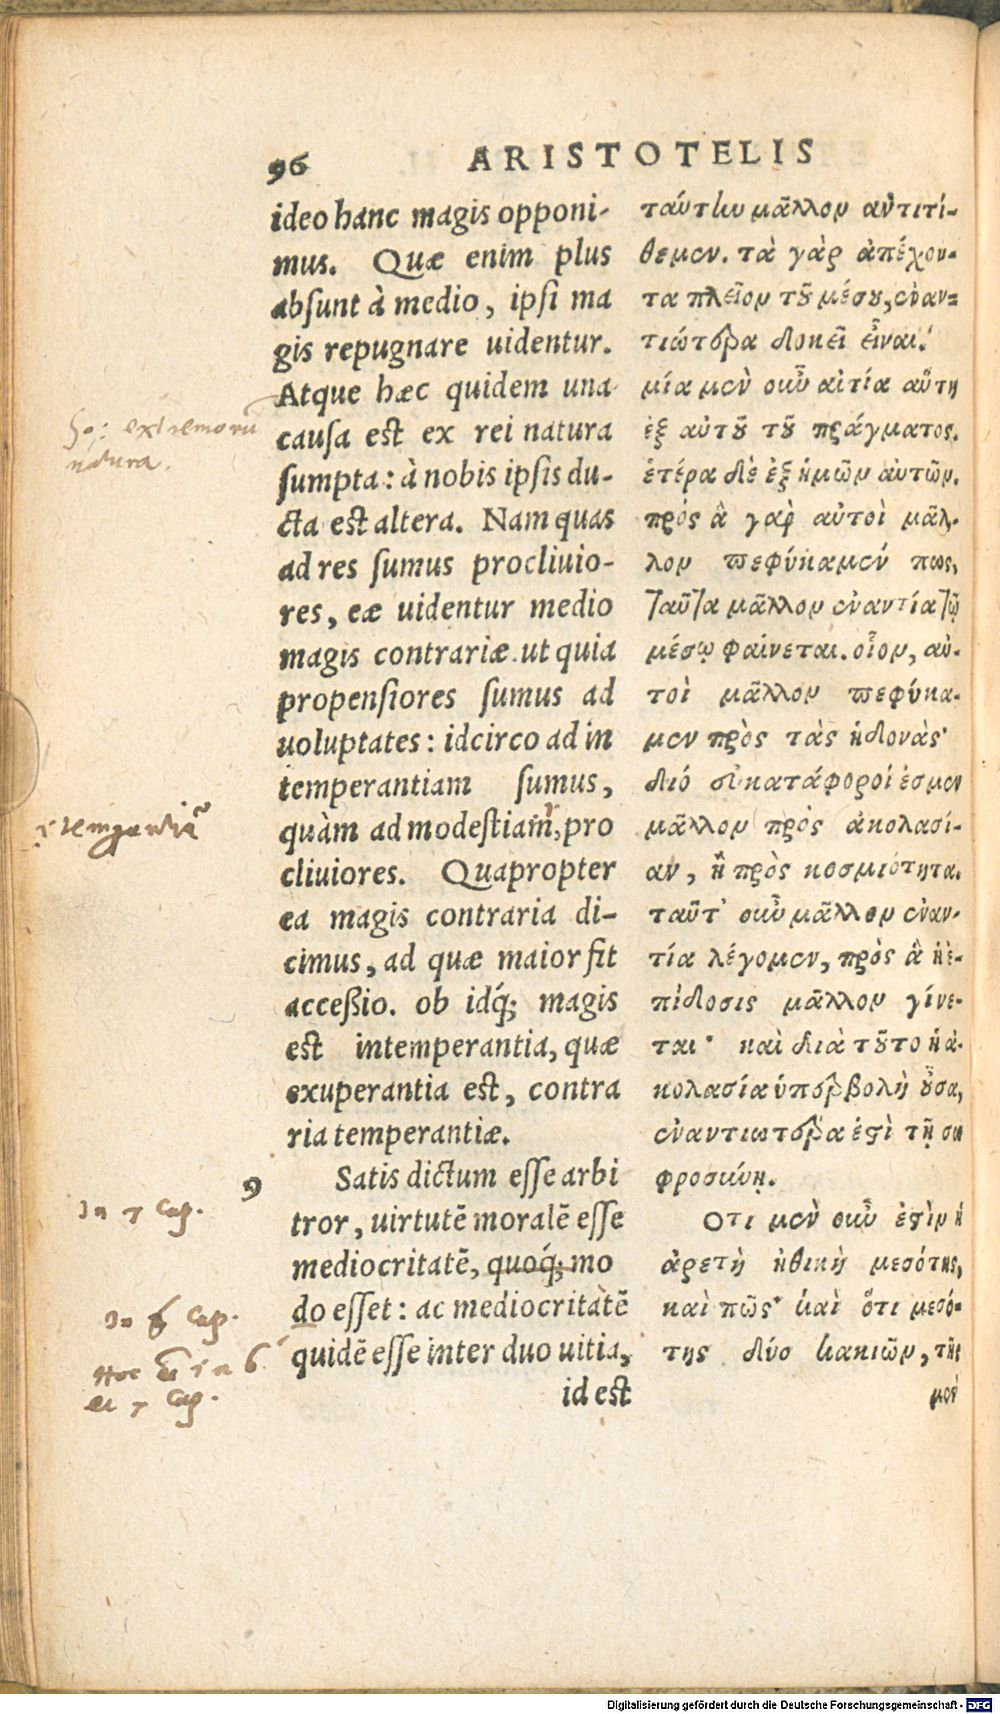 96 ARISTOTELIS
ideo hanc magis opponi-
mus. Quæ enim plus
absunt à medio, ipsi ma
gis repugnare uidentur.
Atque hæc quidem una
causa est ex rei natura
sumpta: à nobis ipsis du-
cta est altera. Nam quas
ad res sumus procliuio-
res, eæ uidentur medio
magis contrariæ. ut quia
propensiores sumus ad
uoluptates: idcirco ad in
temperantiam sumus,
quàm ad modestiam, pro
cliuiores. Quapropter
ea magis contraria di-
cimus, ad quæ maior fit
accessio. ob idq́; magis
est intemperantia, quæ
exuperantia est, contra
ria temperantiæ.
9 Satis dictum esse arbi
tror, uirtutē moralē esse
mediocritatē, quoq́; mo
do esset: ac mediocritatē
quidē esse inter duo uitia,
id est
ταύτην μᾶλλον ἀντιτί-
θεμεν. τὰ γὰρ ἀπέχον-
τα πλεῖον τοῦ μέσου, ἐναν-
τιώτερα δοκεῖ εἶναι.
μία μὲν οὖν αἰτία αὕτη
ἐξ αὐτοῦ τοῦ πράγματος.
ἑτέρα δὲ ἐξ ἡμῶν αὐτῶν.
πρὸς ἃ γὰρ αὐτοὶ μᾶλ-
λον πεφύκαμέν πως,
ταῦτα μᾶλλον ἐναντία τῷ
μέσῳ φαίνεται. οἷον, αὐ-
τοὶ μᾶλλον πεφύκα-
μεν πρὸς τὰς ἡδονὰς·
διό εὐκατάφοροί ἐσμεν
μᾶλλον πρὸς ἀκολασί-
αν, ἢ πρὸς κοσμιότητα.
ταῦτ' οὖν μᾶλλον ἐναν-
τία λέγομεν, πρὸς ἃ ἡ ἐ-
πίδοσις μᾶλλον γίνε-
ται· καὶ διὰ τοῦτο ἡ ἀ-
κολασία ὑπερβολὴ οὖσα,
ἐναντιωτέρα ἐστὶ τῇ σω
φροσύνῃ.
Οτι μὲν οὖν ἐστὶν ἡ
ἀρετὴ ἠθικὴ μεσότης,
καὶ πῶς· καὶ ὅτι μεσό-
της δύο κακιῶν, τῆς
μὲν
extremorū
natura.
In 7 Cap.
In 6 Cap.
et 7 Cap.
Digitalisierung gefördert durch die Deutsche Forschungsgemeinschaft - DFG